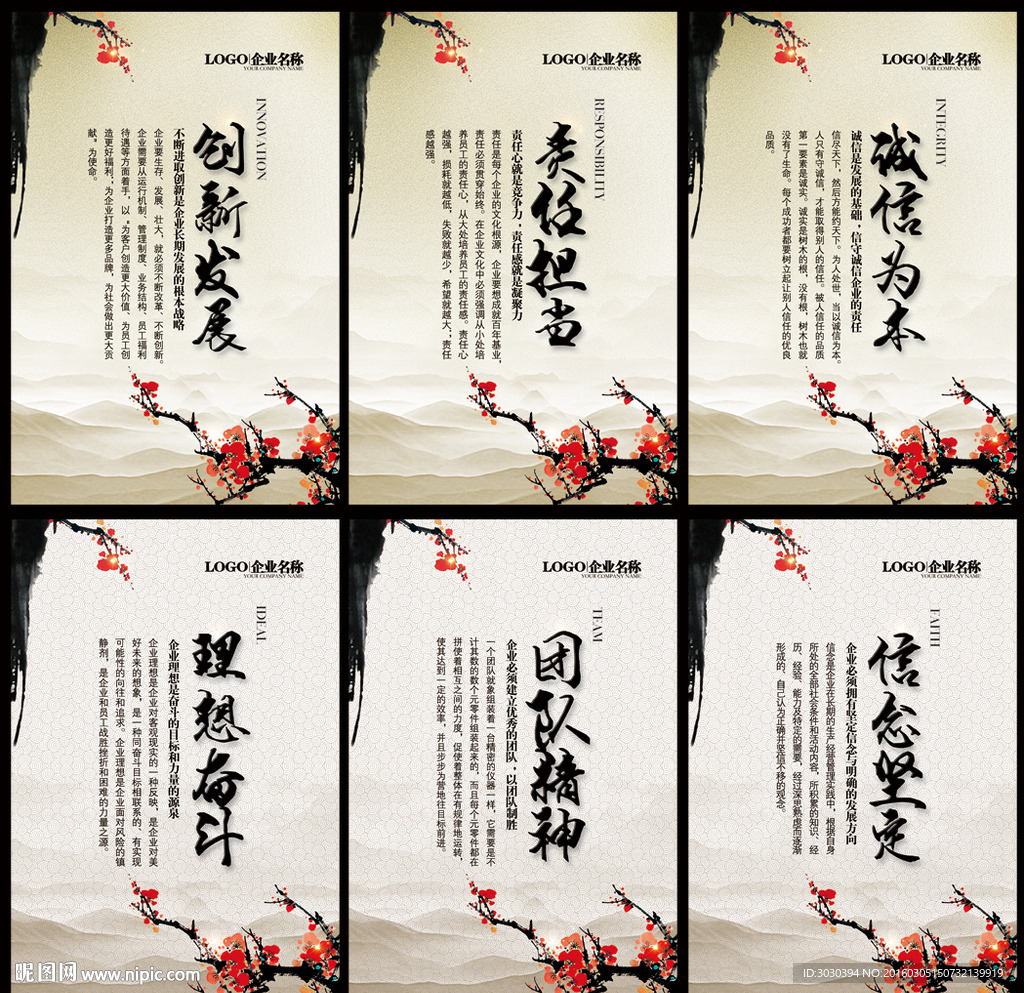 LOGO 企业名称
YOUR COMPANY NAME
INNOVATION
创新发展
不断进取创新是企业长期发展的根本战略
企业要生存、发展、壮大，就必须不断改革、不断创新。
企业需要从运行机制、管理制度、业务结构、员工福利
待遇等方面着手，以“为客户创造更大价值、为员工创
造更好福利；为企业打造更多品牌，为社会做出更大贡
献，为使命。
LOGO 企业名称
YOUR COMPANY NAME
RESPONSIBILITY
责任担当
责任心就是竞争力，责任感就是凝聚力
责任是每个企业的文化根源，企业要想成就百年基业，
责任必须贯穿始终。在企业文化中必须强调从小处培
养员工的责任心，从大处培养员工的责任感。责任心
越强，损耗就越低，失败就越少，希望就越大；责任
感越强。
LOGO 企业名称
YOUR COMPANY NAME
INTEGRITY
诚信为本
诚信是发展的基础，信守诚信企业的责任
信尽天下，然后方能约天下。为人处世，当以诚信为本。
人只有守诚信，才能取得别人的信任。被人信任的品质
第一要素是诚实。诚实是树木的根，没有根，树木也就
没有了生命。每个成功者都要树立起让别人信任的优良
品质。
LOGO 企业名称
YOUR COMPANY NAME
IDEAL
理想奋斗
企业理想是奋斗的目标和力量的源泉
企业理想是企业对客观现实的一种反映，是企业对美
好未来的想象，是一种同奋斗目标相联系的、有实现
可能性的向往和追求。企业理想是企业面对风险的镇
静剂，是企业和员工战胜挫折和困难的力量之源。
LOGO 企业名称
YOUR COMPANY NAME
TEAM
团队精神
企业必须建立优秀的团队，以团队制胜
一个团队就象组装着一台精密的仪器一样，它需要是不
计其数的数个元零件组装起来的，而且每个元零件都在
拼使着相互之间的力度，促使着整体在有规律地运转，
使其达到一定的效率，并且步步为营地往目标前进。
LOGO 企业名称
YOUR COMPANY NAME
FAITH
信念坚定
企业必须拥有坚定信念与明确的发展方向
信念是企业在长期的生产经营管理实践中，根据自身
所处的全部社会条件和活动内容，所积累的知识、经
历、经验、能力及特定的需要，经过深思熟虑而逐渐
形成的，自己认为正确并坚信不移的观念。
昵图网 www.nipic.com
ID:3030394 NO:20160305150732139919